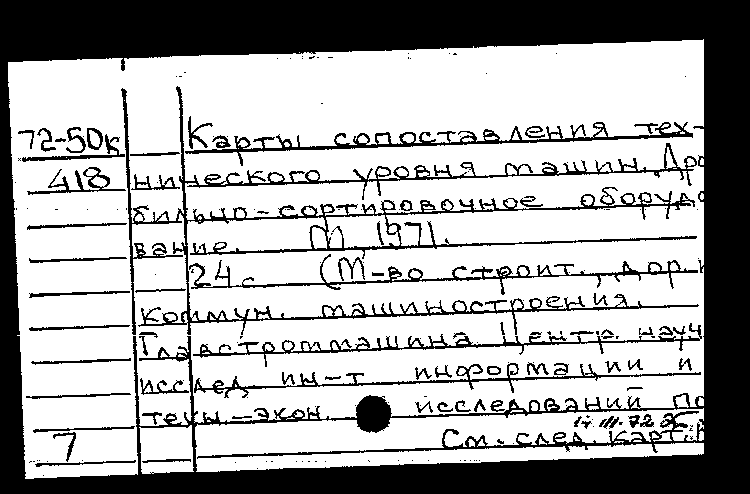 72-50к Карты сопоставления тех-
418 нического уровня машин. Дро
бильно-сортировочное оборудо
вание. М 1971.
24 с (М-во строит., дор.
коммун. машиностроения.
Главстроммашина Центр. науч
исслед. ин-т информации и
техн.-экон. исследований по
7 См. след. карт.